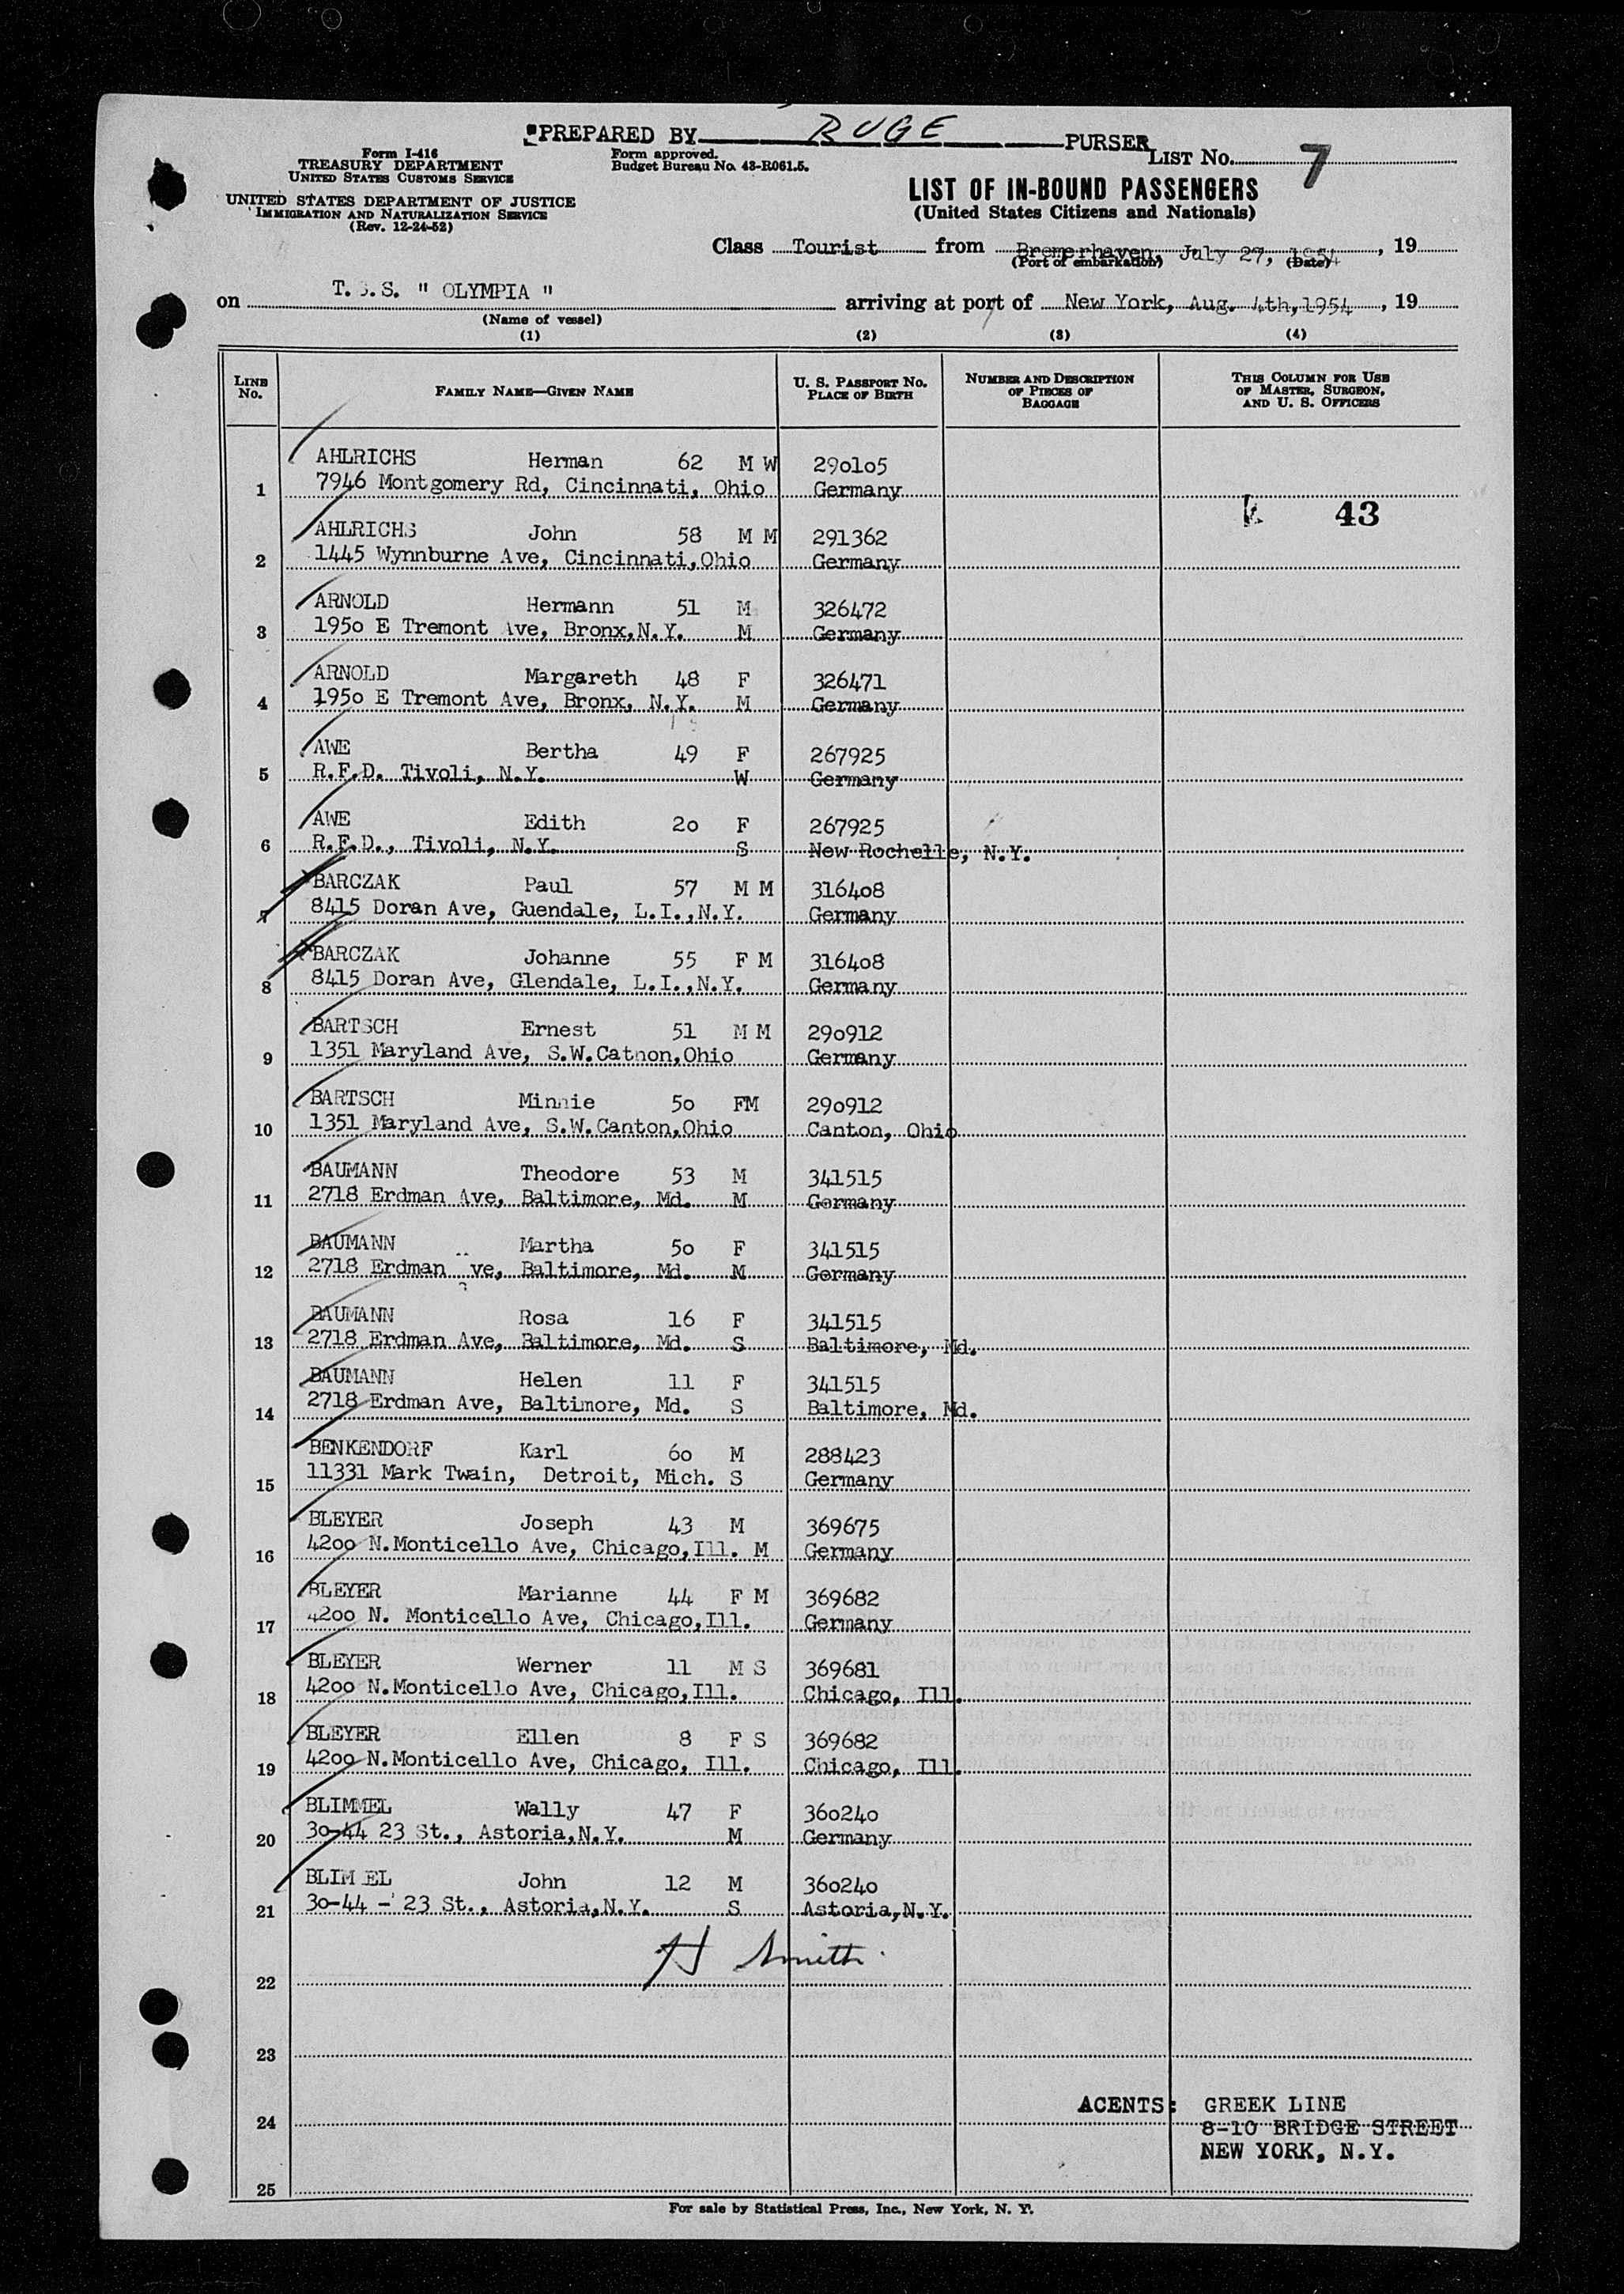 PREPARED BY RUGE PURSER
Form I-416
TREASURY DEPARTMENT
UNITED STATES CUSTOMS SERVICE
UNITED STATES DEPARTMENT OF JUSTICE
IMMIGRATION AND NATURALIZATION SERVICE
(Rev. 12-24-52)
Form approved.
Budget Bureau No. 43-R061.5.
LIST No. 7
LIST OF IN-BOUND PASSENGERS
(United States Citizens and Nationals)
Class Tourist from Bremerhaven, July 27, 1954, 19
(Port of embarkation) (Date)
on T.S.S. " OLYMPIA " arriving at port of New York, Aug. 4th, 1954, 19
(Name of vessel)
(1) (2) (3) (4)
LINE No. FAMILY NAME—GIVEN NAME U. S. PASSPORT No. PLACE OF BIRTH NUMBER AND DESCRIPTION OF PIECES OF BAGGAGE THIS COLUMN FOR USE OF MASTER, SURGEON, AND U. S. OFFICERS
AHLRICHS Herman 62 M W 290105
1 7946 Montgomery Rd, Cincinnati, Ohio Germany
43
AHLRICHS John 58 M M 291362
2 1445 Wynnburne Ave, Cincinnati, Ohio Germany
ARNOLD Hermann 51 M 326472
3 1950 E Tremont Ave, Bronx, N.Y. M Germany
ARNOLD Margareth 48 F 326471
4 1950 E Tremont Ave, Bronx, N.Y. M Germany
AWE Bertha 49 F 267925
5 R.F.D. Tivoli, N.Y. W Germany
AWE Edith 20 F 267925
6 R.F.D., Tivoli, N.Y. S New Rochelle, N.Y.
BARCZAK Paul 57 M M 316408
7 8415 Doran Ave, Guendale, L.I.,N.Y. Germany
BARCZAK Johanne 55 F M 316408
8 8415 Doran Ave, Glendale, L.I.,N.Y. Germany
BARTSCH Ernest 51 M M 290912
9 1351 Maryland Ave, S.W.Catnon,Ohio Germany
BARTSCH Minnie 50 FM 290912
10 1351 Maryland Ave, S.W.Canton,Ohio Canton, Ohio
BAUMANN Theodore 53 M 341515
11 2718 Erdman Ave, Baltimore, Md. M Germany
BAUMANN Martha 50 F 341515
12 2718 Erdman ve, Baltimore, Md. M Germany
BAUMANN Rosa 16 F 341515
13 2718 Erdman Ave, Baltimore, Md. S Baltimore, Md.
BAUMANN Helen 11 F 341515
14 2718 Erdman Ave, Baltimore, Md. S Baltimore, Md.
BENKENDORF Karl 60 M 288423
15 11331 Mark Twain, Detroit, Mich. S Germany
BLEYER Joseph 43 M 369675
16 4200 N.Monticello Ave, Chicago,Ill. M Germany
BLEYER Marianne 44 F M 369682
17 4200 N. Monticello Ave, Chicago,Ill. Germany
BLEYER Werner 11 M S 369681
18 4200 N.Monticello Ave, Chicago,Ill. Chicago, Ill.
BLEYER Ellen 8 F S 369682
19 4200 N.Monticello Ave, Chicago, Ill. Chicago, Ill.
BLIMMEL Wally 47 F 360240
20 30-44 23 St., Astoria,N.Y. M Germany
BLIM EL John 12 M 360240
21 30-44 - 23 St., Astoria,N.Y. S Astoria,N.Y.
H Smith
22
23
AGENTS: GREEK LINE
24 8-10 BRIDGE STREET
NEW YORK, N.Y.
25
For sale by Statistical Press, Inc., New York, N. Y.